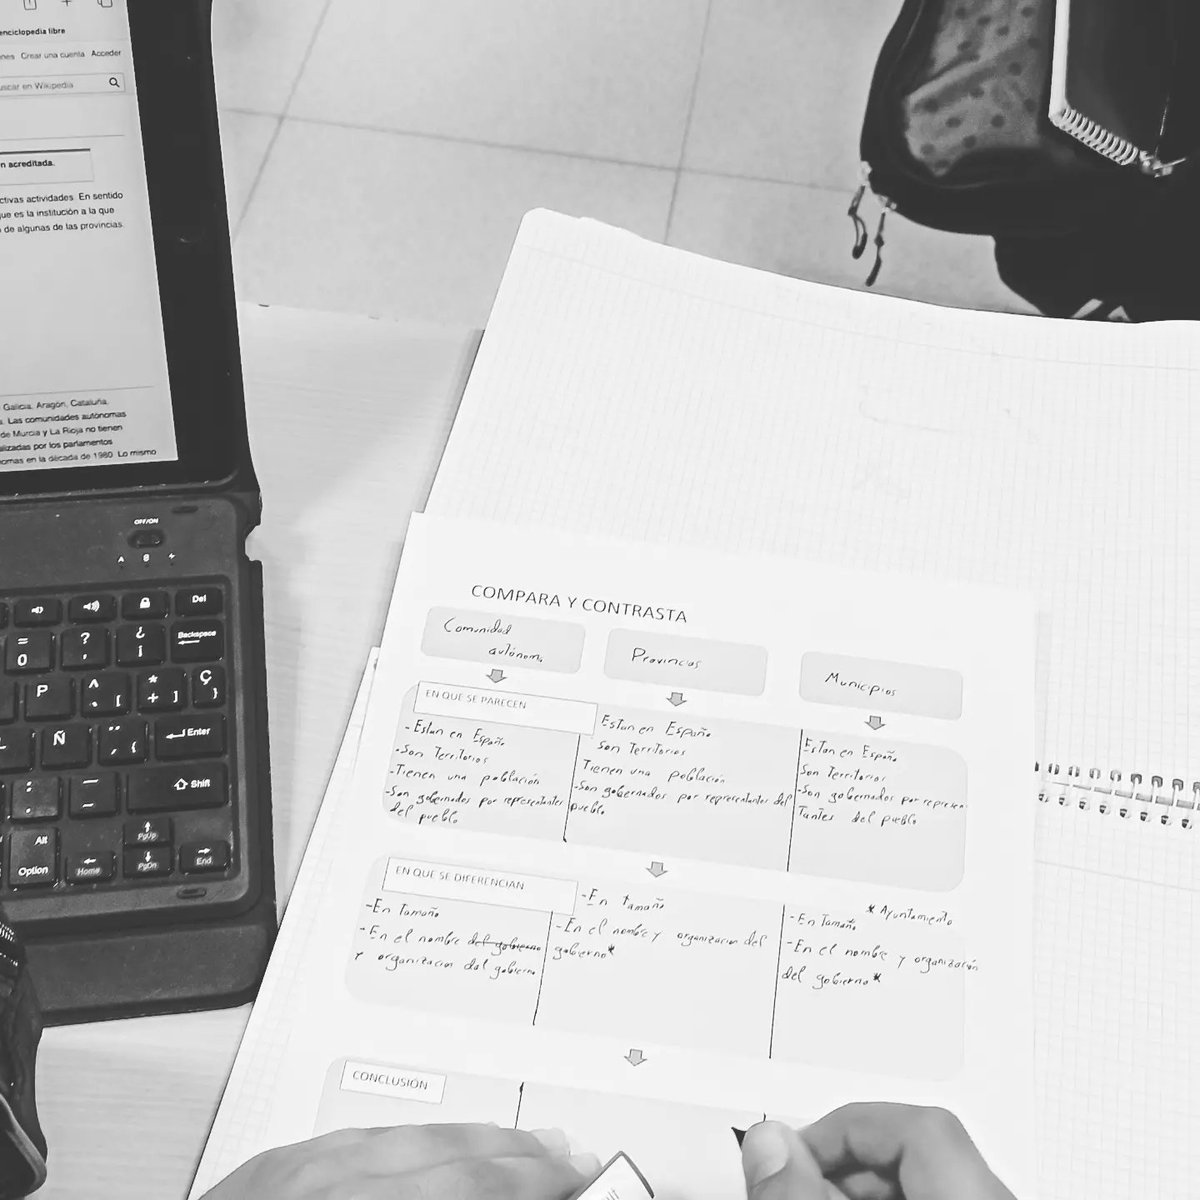 enciclopedia libre
Crear una cuenta Acceder
uscar en Wikipedia
n acreditada.
ctivas actividades. En sentido
que es la institución a la que
n de algunas de las provincias
Galicia, Aragón, Cataluña,
Las comunidades autónomas
de Murcia y La Rioja no tienen
alizadas por los parlamentos
omas en la década de 1980. Lo mismo
OFF/ON
Del
= 0
?
¿ ¡
Backspace
P
^ [
* + ]
Ç }
Ñ
¨ ´ {
Enter
: .
_ -
Shift
Alt
Option
Home
PgUp
PgDn
End
COMPARA Y CONTRASTA
Comunidad
autónoma
Provincias
Municipios
EN QUE SE PARECEN
-Estan en España
-Son Territorios
-Tienen una población
-Son gobernados por representantes
del pueblo
Estan en España
Son Territorios
Tienen una población
-Son gobernados por representantes del
pueblo
Estan en España
Son Territorios
-Son gobernados por represen
Tantes del pueblo
EN QUE SE DIFERENCIAN
-En Tamaño
-En el nombre del gobierno
y organizacion del gobierno
-En tamaño
-En el nombre y organizacion del
gobierno*
* Ayuntamiento
-En Tamaño
-En el nombre y organización
del gobierno*
CONCLUSIÓN